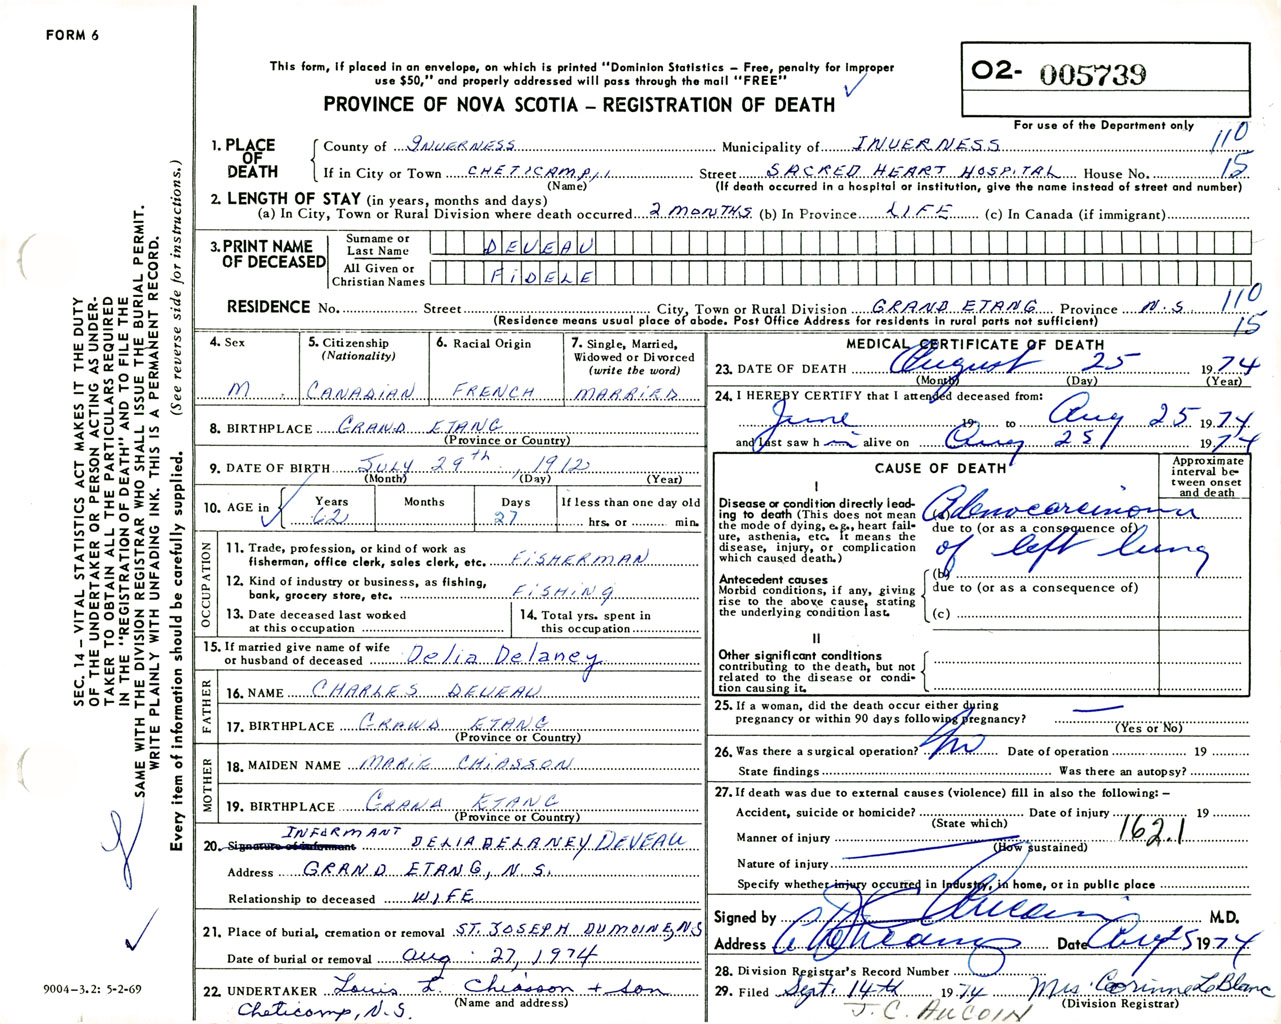 FORM 6
This form, if placed in an envelope, on which is printed "Dominion Statistics – Free, penalty for improper
use $50," and properly addressed will pass through the mail "FREE"
PROVINCE OF NOVA SCOTIA – REGISTRATION OF DEATH
02- 005739
For use of the Department only
1. PLACE OF DEATH
County of INVERNESS Municipality of INVERNESS 110
If in City or Town CHETICAMP Street SACRED HEART HOSPITAL House No. 15
(Name) (If death occurred in a hospital or institution, give the name instead of street and number)
2. LENGTH OF STAY (in years, months and days)
(a) In City, Town or Rural Division where death occurred 2 MONTHS (b) In Province LIFE (c) In Canada (if immigrant)
3. PRINT NAME OF DECEASED
Surname or Last Name DEVEAU
All Given or Christian Names FIDELE
RESIDENCE No. Street City, Town or Rural Division GRAND ETANG Province N.S. 110
(Residence means usual place of abode. Post Office Address for residents in rural parts not sufficient) 15
4. Sex 5. Citizenship (Nationality) 6. Racial Origin 7. Single, Married, Widowed or Divorced (write the word)
M. CANADIAN FRENCH MARRIED
8. BIRTHPLACE GRAND ETANG
(Province or Country)
9. DATE OF BIRTH JULY 29th, 1912
(Month) (Day) (Year)
10. AGE in Years Months Days If less than one day old
62 27 hrs. or min.
OCCUPATION
11. Trade, profession, or kind of work as
fisherman, office clerk, sales clerk, etc. FISHERMAN
12. Kind of industry or business, as fishing,
bank, grocery store, etc. FISHING
13. Date deceased last worked
at this occupation
14. Total yrs. spent in
this occupation
15. If married give name of wife
or husband of deceased Delia Delaney
FATHER
16. NAME CHARLES DEVEAU
17. BIRTHPLACE GRAND ETANG
(Province or Country)
MOTHER
18. MAIDEN NAME MARIE CHIASSON
19. BIRTHPLACE GRAND ETANG
(Province or Country)
INFORMANT
20. Signature of informant DELIA DELANEY DEVEAU
Address GRAND ETANG, N.S.
Relationship to deceased WIFE
21. Place of burial, cremation or removal ST. JOSEPH DUMOINE, N.S
Date of burial or removal Aug. 27, 1974
22. UNDERTAKER Louis L. Chiasson + son
(Name and address)
Cheticamp, N.S.
MEDICAL CERTIFICATE OF DEATH
23. DATE OF DEATH August 25 1974
(Month) (Day) (Year)
24. I HEREBY CERTIFY that I attended deceased from:
June 19 to Aug 25 1974
and last saw h im alive on Aug 25 1974
CAUSE OF DEATH
Approximate interval between onset and death
I
Disease or condition directly lead-
ing to death (This does not mean
the mode of dying, e.g., heart fail-
ure, asthenia, etc. It means the
disease, injury, or complication
which caused death.)
(a) Adenocarcinoma
due to (or as a consequence of)
of left lung
(b)
due to (or as a consequence of)
(c)
Antecedent causes
Morbid conditions, if any, giving
rise to the above cause, stating
the underlying condition last.
II
Other significant conditions
contributing to the death, but not
related to the disease or condi-
tion causing it.
25. If a woman, did the death occur either during
pregnancy or within 90 days following pregnancy? —
(Yes or No)
26. Was there a surgical operation? No Date of operation 19
State findings Was there an autopsy?
27. If death was due to external causes (violence) fill in also the following: –
Accident, suicide or homicide? Date of injury 19
(State which)
162.1
Manner of injury
(How sustained)
Nature of injury
Specify whether injury occurred in industry, in home, or in public place
Signed by Aucoin M.D.
Address Cheticamp Date Aug 25 1974
28. Division Registrar's Record Number
29. Filed Sept. 14th 1974 Mrs. Corinne LeBlanc
(Division Registrar)
J. C. AUCOIN
SEC. 14 – VITAL STATISTICS ACT MAKES IT THE DUTY
OF THE UNDERTAKER OR PERSON ACTING AS UNDER-
TAKER TO OBTAIN ALL THE PARTICULARS REQUIRED
IN THE "REGISTRATION OF DEATH" AND TO FILE THE
SAME WITH THE DIVISION REGISTRAR WHO SHALL ISSUE THE BURIAL PERMIT.
WRITE PLAINLY WITH UNFADING INK. THIS IS A PERMANENT RECORD.
Every item of information should be carefully supplied. (See reverse side for instructions.)
9004-3.2: 5-2-69